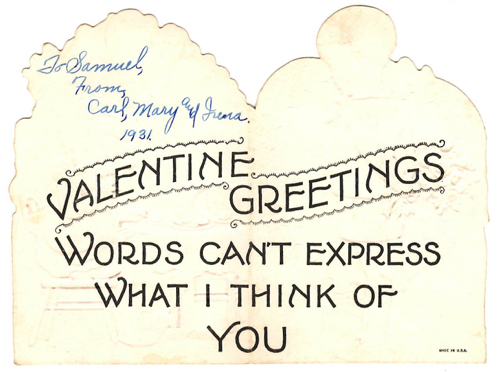 To Samuel,
From,
Carl, Mary and Irena.
1931.
VALENTINE GREETINGS
WORDS CAN'T EXPRESS
WHAT I THINK OF
YOU
MADE IN U.S.A.